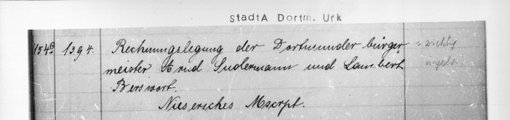 StadtA Dortm. Urk
1394. Rechnungslegung der Dortmunder bürger
meister Arnd Sudermann und Lambert
Berswort.
Niesersches Mscrpt.